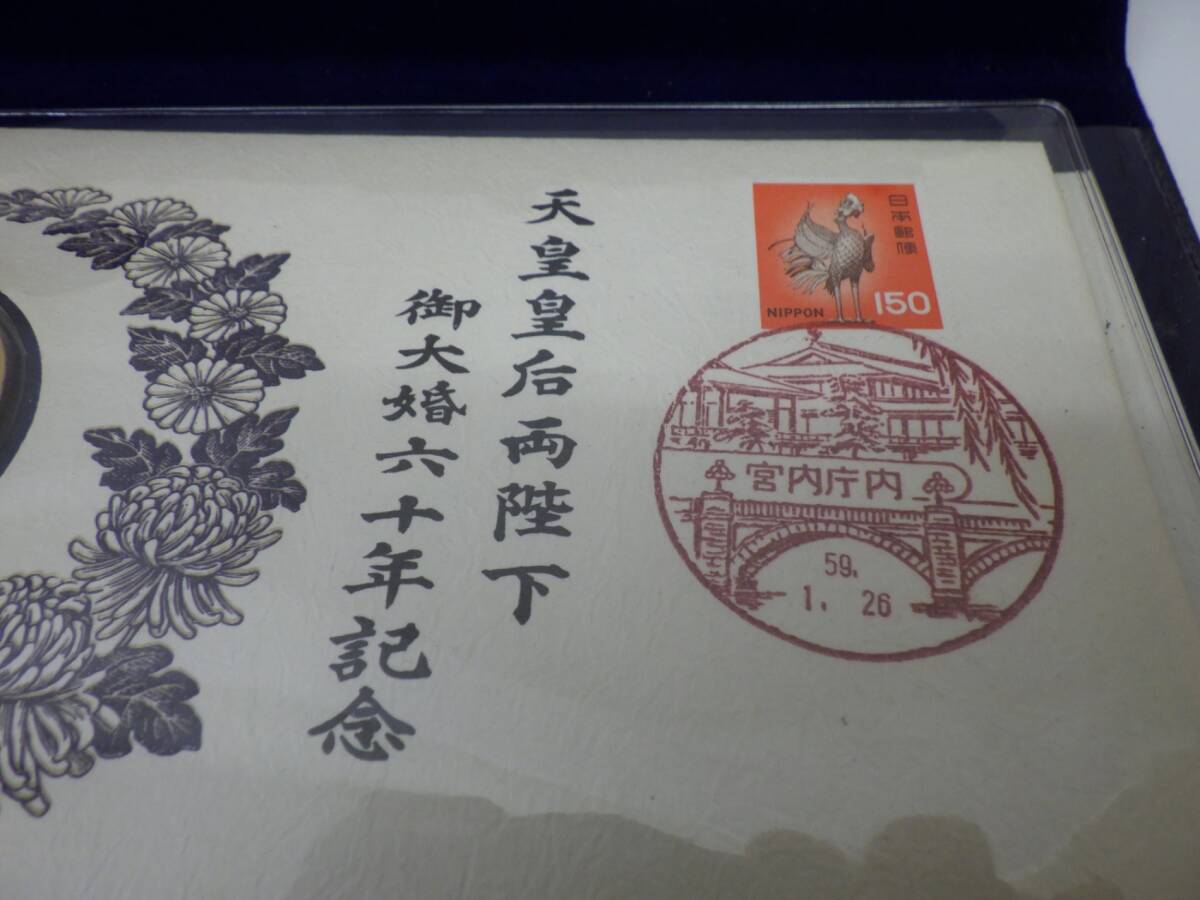 天皇皇后両陛下
御大婚六十年記念
日本郵便
NIPPON
150
宮内庁内
59.
1. 26